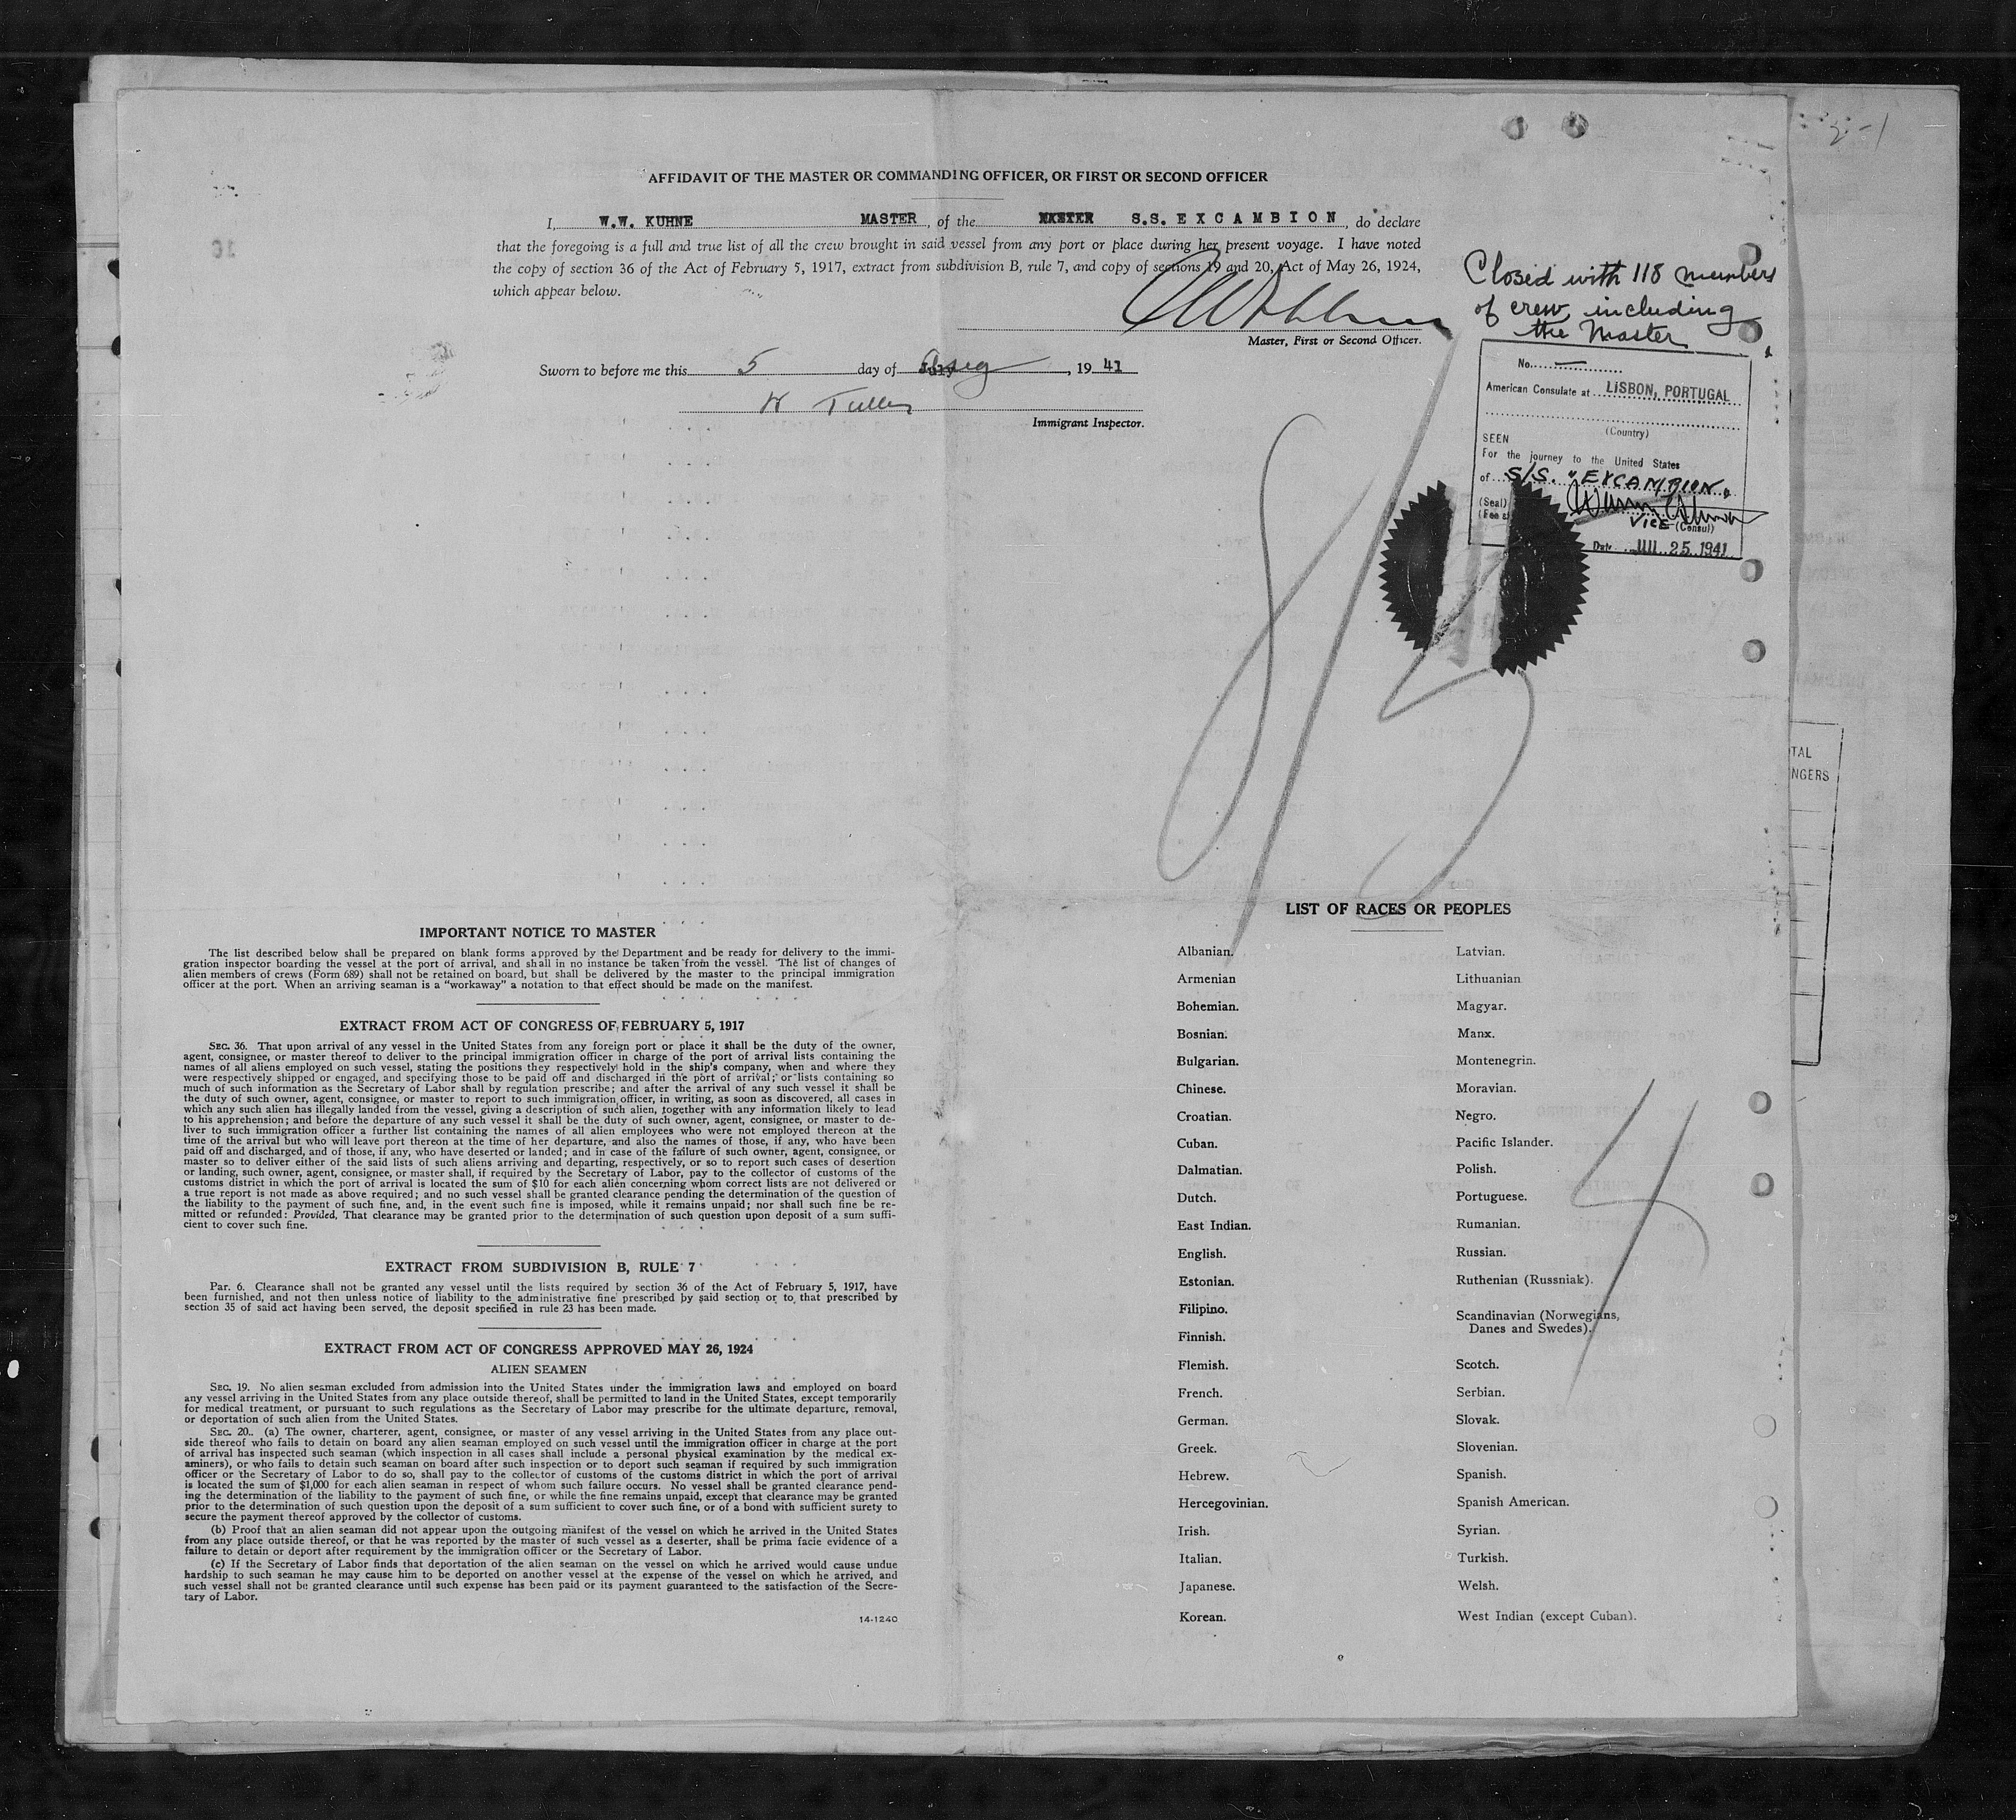 2-1
AFFIDAVIT OF THE MASTER OR COMMANDING OFFICER, OR FIRST OR SECOND OFFICER
I, W.W. KUHNE MASTER, of the S.S. E X C A M B I O N, do declare
that the foregoing is a full and true list of all the crew brought in said vessel from any port or place during her present voyage. I have noted
the copy of section 36 of the Act of February 5, 1917, extract from subdivision B, rule 7, and copy of sections 19 and 20, Act of May 26, 1924,
which appear below.
Master, First or Second Officer.
Sworn to before me this 5 day of Aug, 19 41
Immigrant Inspector.
Closed with 118 members
of crew, including
the Master
No.
American Consulate at LISBON, PORTUGAL
(Country)
SEEN
For the journey to the United States
of S/S. "EXCAMBION"
(Seal)
(Fee
VICE (Consul)
Date JUL 25 1941
8/5
TAL
NGERS
IMPORTANT NOTICE TO MASTER
The list described below shall be prepared on blank forms approved by the Department and be ready for delivery to the immi-
gration inspector boarding the vessel at the port of arrival, and shall in no instance be taken from the vessel. The list of changes of
alien members of crews (Form 689) shall not be retained on board, but shall be delivered by the master to the principal immigration
officer at the port. When an arriving seaman is a "workaway" a notation to that effect should be made on the manifest.
EXTRACT FROM ACT OF CONGRESS OF FEBRUARY 5, 1917
SEC. 36. That upon arrival of any vessel in the United States from any foreign port or place it shall be the duty of the owner,
agent, consignee, or master thereof to deliver to the principal immigration officer in charge of the port of arrival lists containing the
names of all aliens employed on such vessel, stating the positions they respectively hold in the ship's company, when and where they
were respectively shipped or engaged, and specifying those to be paid off and discharged in the port of arrival; or lists containing so
much of such information as the Secretary of Labor shall by regulation prescribe; and after the arrival of any such vessel it shall be
the duty of such owner, agent, consignee, or master to report to such immigration officer, in writing, as soon as discovered, all cases in
which any such alien has illegally landed from the vessel, giving a description of such alien, together with any information likely to lead
to his apprehension; and before the departure of any such vessel it shall be the duty of such owner, agent, consignee, or master to de-
liver to such immigration officer a further list containing the names of all alien employees who were not employed thereon at the
time of the arrival but who will leave port thereon at the time of her departure, and also the names of those, if any, who have been
paid off and discharged, and of those, if any, who have deserted or landed; and in case of the failure of such owner, agent, consignee, or
master so to deliver either of the said lists of such aliens arriving and departing, respectively, or so to report such cases of desertion
or landing, such owner, agent, consignee, or master shall, if required by the Secretary of Labor, pay to the collector of customs of the
customs district in which the port of arrival is located the sum of $10 for each alien concerning whom correct lists are not delivered or
a true report is not made as above required; and no such vessel shall be granted clearance pending the determination of the question of
the liability to the payment of such fine, and, in the event such fine is imposed, while it remains unpaid; nor shall such fine be re-
mitted or refunded: Provided, That clearance may be granted prior to the determination of such question upon deposit of a sum suffi-
cient to cover such fine.
EXTRACT FROM SUBDIVISION B, RULE 7
Par. 6. Clearance shall not be granted any vessel until the lists required by section 36 of the Act of February 5, 1917, have
been furnished, and not then unless notice of liability to the administrative fine prescribed by said section or to that prescribed by
section 35 of said act having been served, the deposit specified in rule 23 has been made.
EXTRACT FROM ACT OF CONGRESS APPROVED MAY 26, 1924
ALIEN SEAMEN
SEC. 19. No alien seaman excluded from admission into the United States under the immigration laws and employed on board
any vessel arriving in the United States from any place outside thereof, shall be permitted to land in the United States, except temporarily
for medical treatment, or pursuant to such regulations as the Secretary of Labor may prescribe for the ultimate departure, removal,
or deportation of such alien from the United States.
SEC. 20. (a) The owner, charterer, agent, consignee, or master of any vessel arriving in the United States from any place out-
side thereof who fails to detain on board any alien seaman employed on such vessel until the immigration officer in charge at the port
of arrival has inspected such seaman (which inspection in all cases shall include a personal physical examination by the medical ex-
aminers), or who fails to detain such seaman on board after such inspection or to deport such seaman if required by such immigration
officer or the Secretary of Labor to do so, shall pay to the collector of customs of the customs district in which the port of arrival
is located the sum of $1,000 for each alien seaman in respect of whom such failure occurs. No vessel shall be granted clearance pend-
ing the determination of the liability to the payment of such fine, or while the fine remains unpaid, except that clearance may be granted
prior to the determination of such question upon the deposit of a sum sufficient to cover such fine, or of a bond with sufficient surety to
secure the payment thereof approved by the collector of customs.
(b) Proof that an alien seaman did not appear upon the outgoing manifest of the vessel on which he arrived in the United States
from any place outside thereof, or that he was reported by the master of such vessel as a deserter, shall be prima facie evidence of a
failure to detain or deport after requirement by the immigration officer or the Secretary of Labor.
(c) If the Secretary of Labor finds that deportation of the alien seaman on the vessel on which he arrived would cause undue
hardship to such seaman he may cause him to be deported on another vessel at the expense of the vessel on which he arrived, and
such vessel shall not be granted clearance until such expense has been paid or its payment guaranteed to the satisfaction of the Secre-
tary of Labor.
14-1240
LIST OF RACES OR PEOPLES
Albanian.
Armenian
Bohemian.
Bosnian.
Bulgarian.
Chinese.
Croatian.
Cuban.
Dalmatian.
Dutch.
East Indian.
English.
Estonian.
Filipino.
Finnish.
Flemish.
French.
German.
Greek.
Hebrew.
Hercegovinian.
Irish.
Italian.
Japanese.
Korean.
Latvian.
Lithuanian
Magyar.
Manx.
Montenegrin.
Moravian.
Negro.
Pacific Islander.
Polish.
Portuguese.
Rumanian.
Russian.
Ruthenian (Russniak).
Scandinavian (Norwegians,
Danes and Swedes).
Scotch.
Serbian.
Slovak.
Slovenian.
Spanish.
Spanish American.
Syrian.
Turkish.
Welsh.
West Indian (except Cuban).